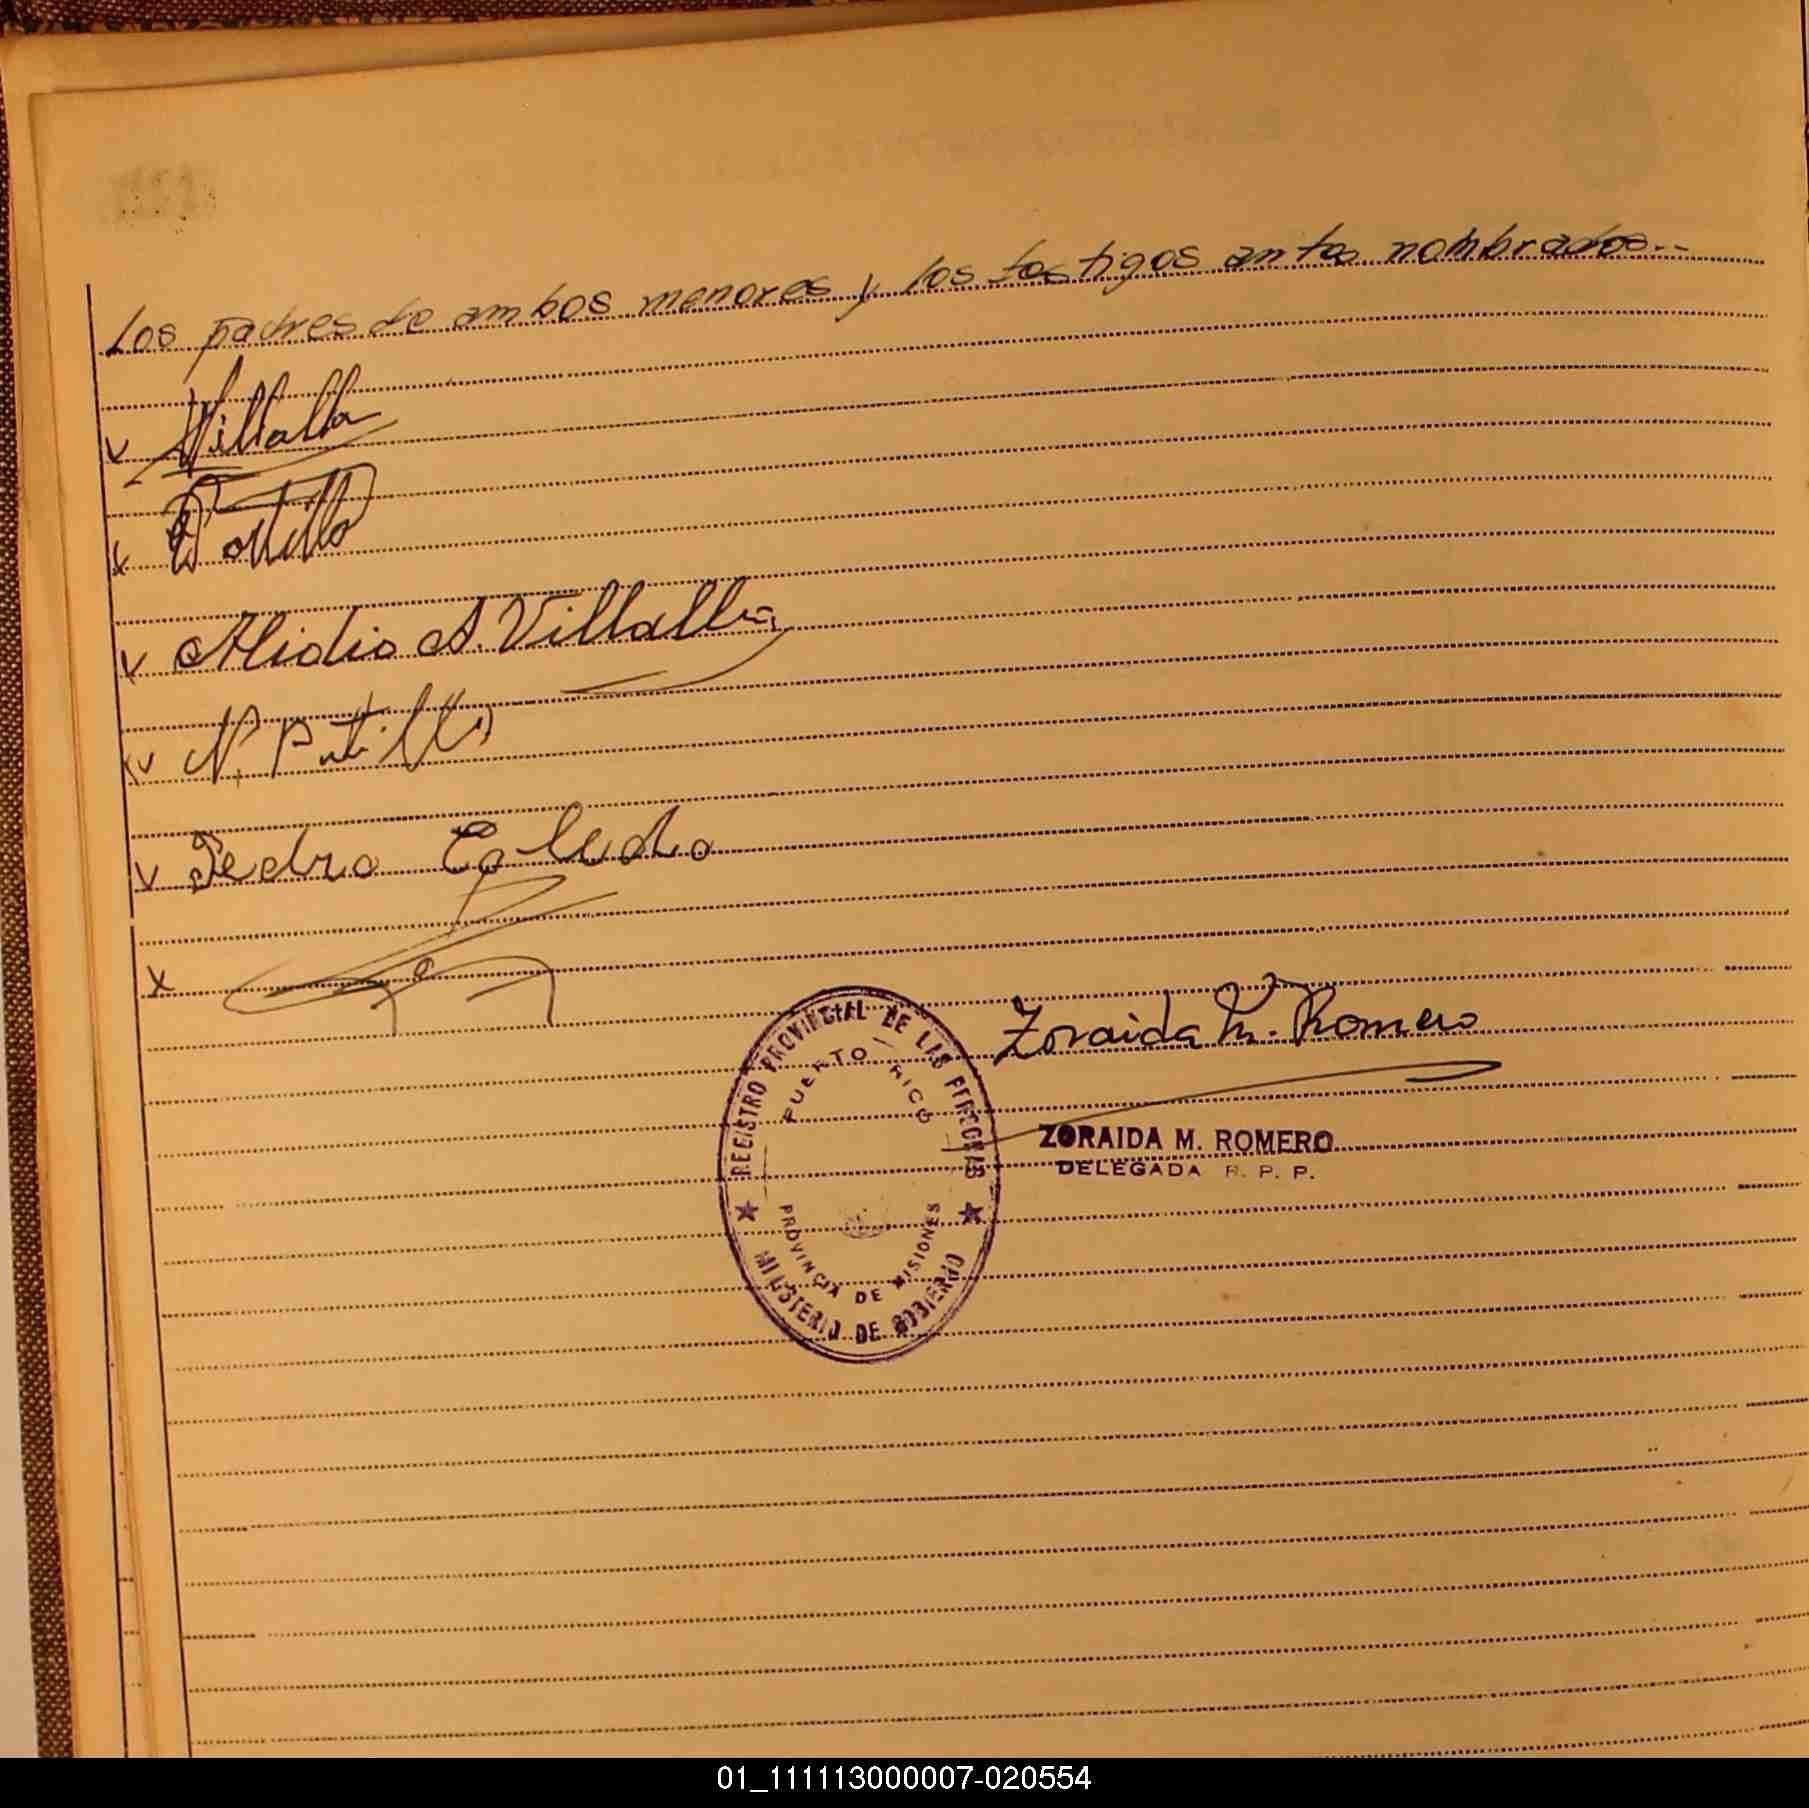 los padres de ambos menores y los testigos antes nombrados.--
v Villalba
x Portillo
v Alidio A. Villalba
v N. Portillo
v Pedro
x
Zoraida M. Romero
REGISTRO PROVINCIAL DE LAS PERSONAS
PUERTO RICO
ZORAIDA M. ROMERO
DELEGADA R. P. P.
PROVINCIA DE MISIONES
MINISTERIO DE GOBIERNO
01_111113000007-020554